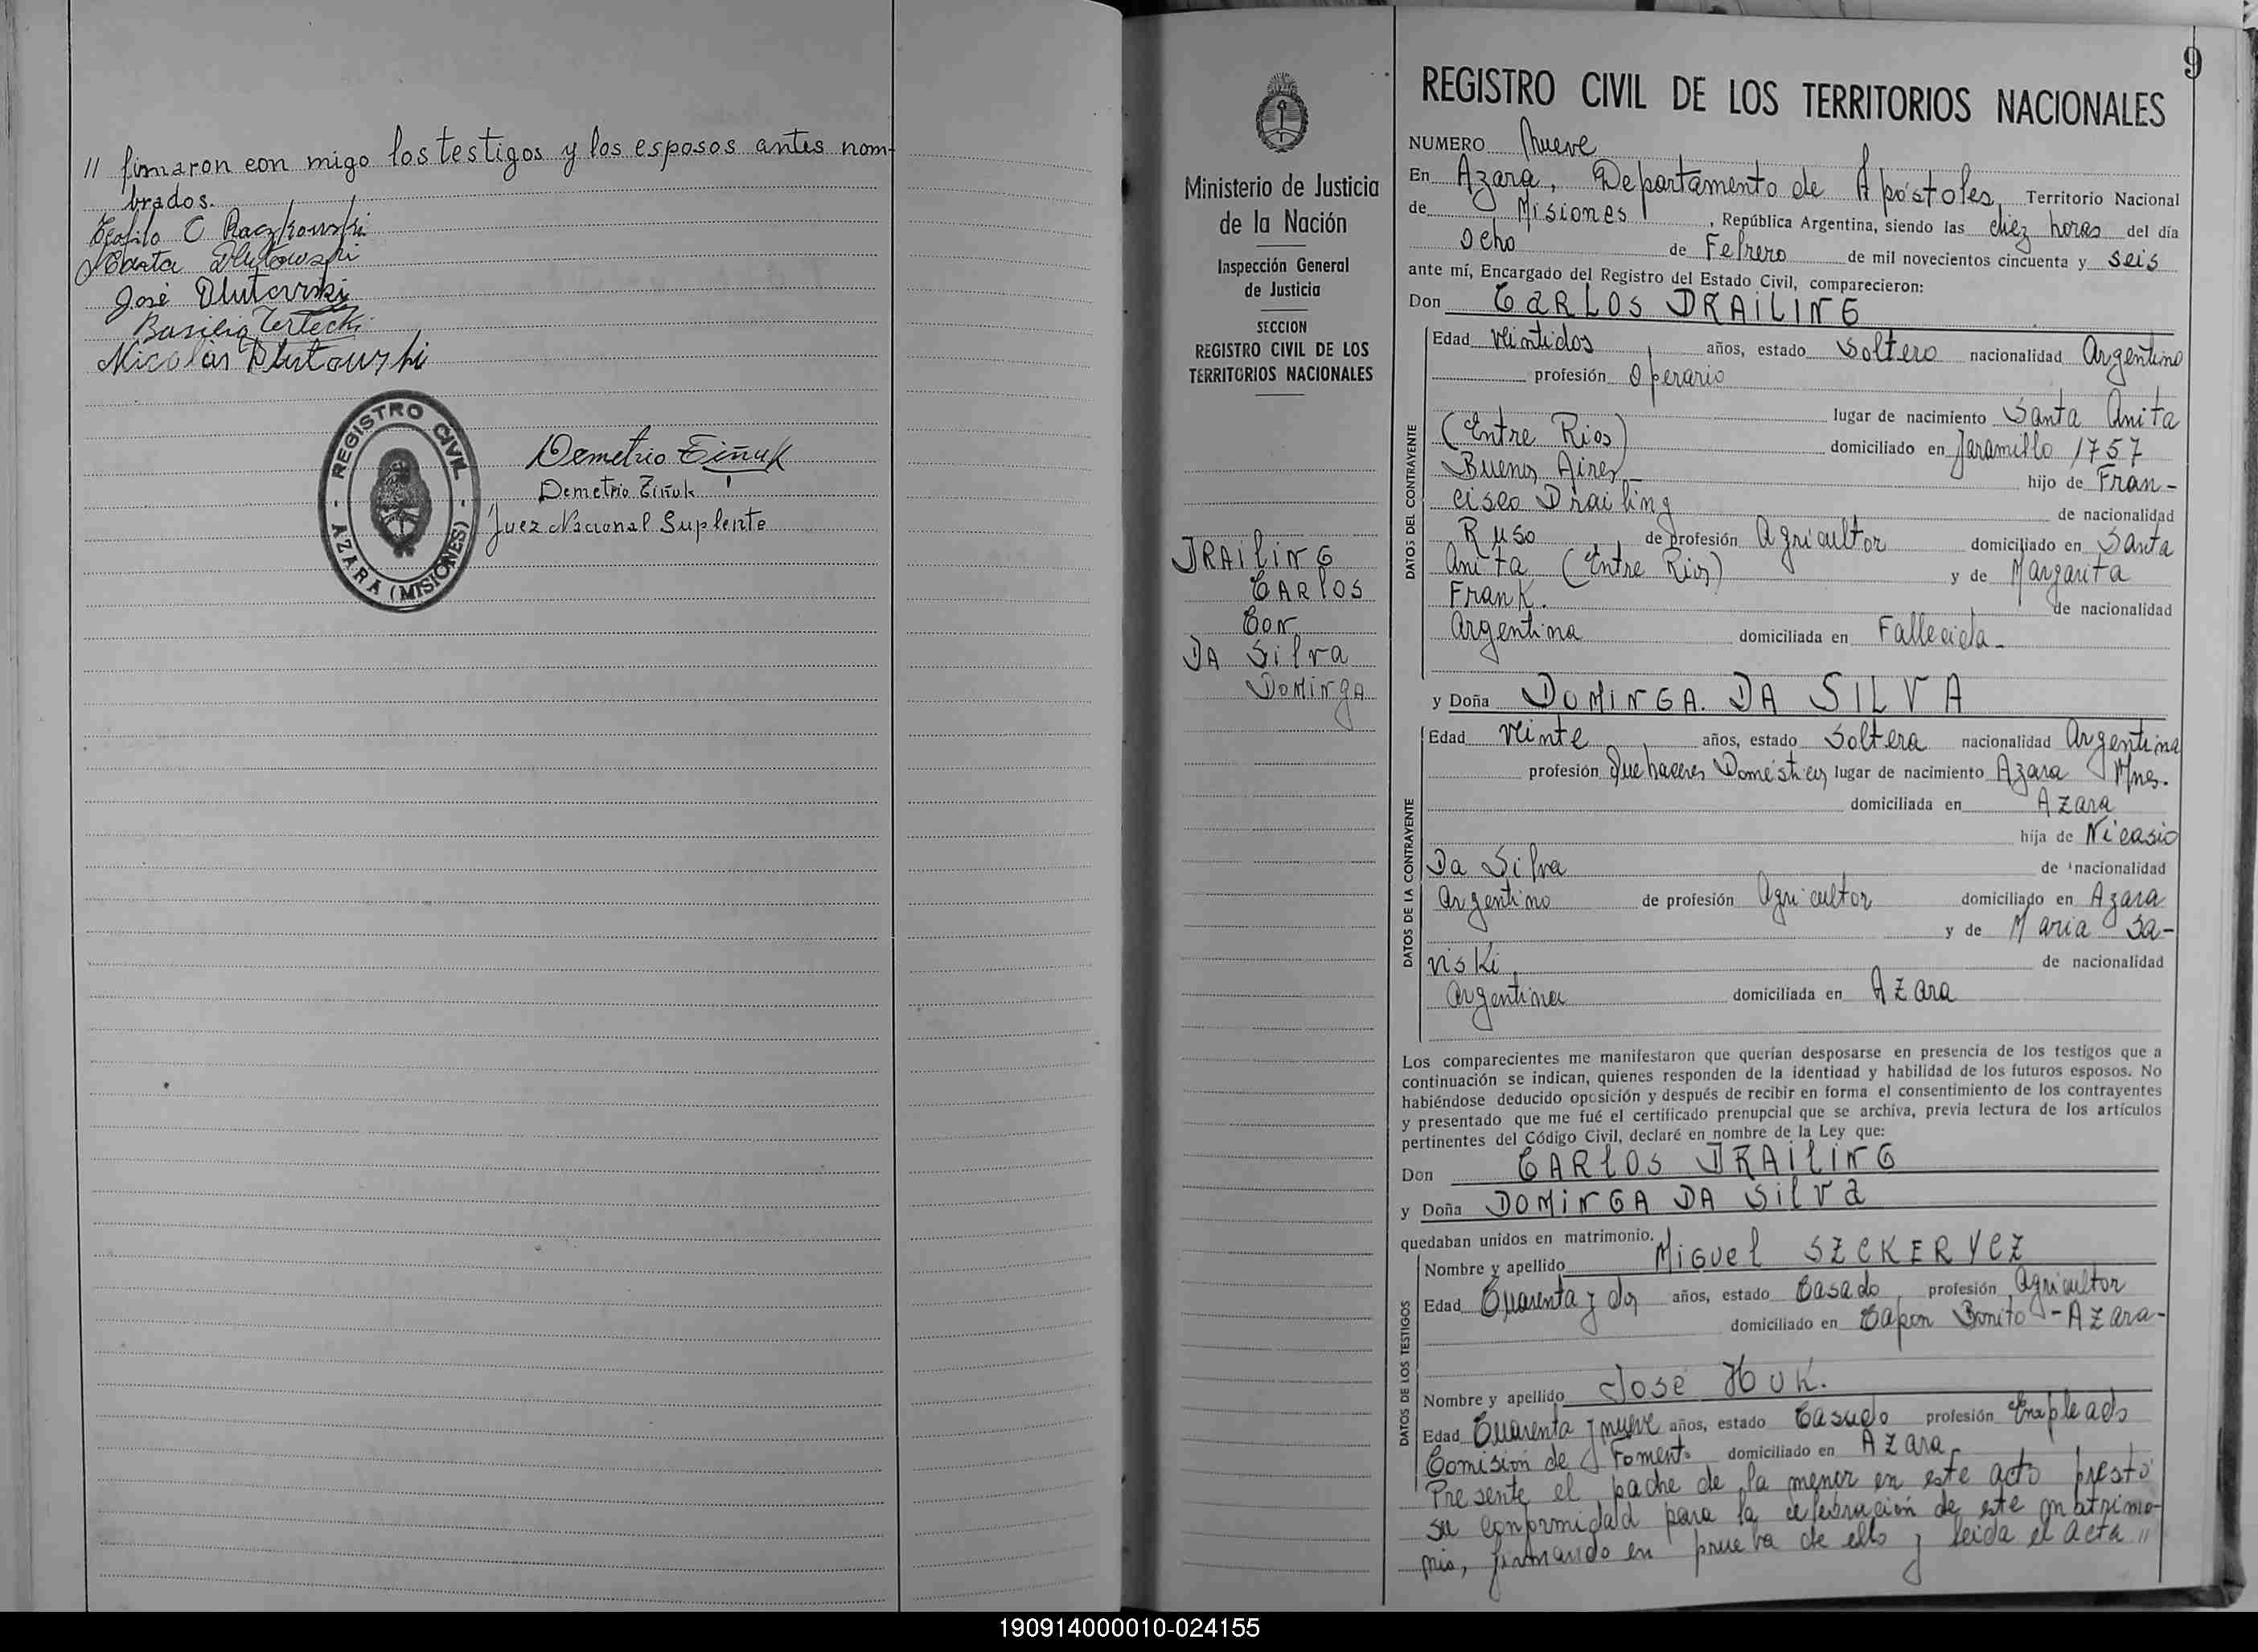 // firmaron con migo los testigos y los esposos antes nom-
brados.
Teofilo C Raczkowski
Marta Dlutowski
José Dlutowski
Basilio Tertecki
Nicolás Dlutowski
REGISTRO CIVIL
- AZARA (MISIONES) -
Demetrio Ziñuk
Demetrio Ziñuk
Juez Nacional Suplente
9
Ministerio de Justicia
de la Nación
Inspección General
de Justicia
SECCION
REGISTRO CIVIL DE LOS
TERRITORIOS NACIONALES
DRAILING
CARLOS
CON
DA SILVA
DOMINGA
REGISTRO CIVIL DE LOS TERRITORIOS NACIONALES
NUMERO Nueve
En Azara, Departamento de Apóstoles, Territorio Nacional
de Misiones, República Argentina, siendo las diez horas del día
Ocho de Febrero de mil novecientos cincuenta y seis
ante mí, Encargado del Registro del Estado Civil, comparecieron:
Don CARLOS DRAILING
DATOS DEL CONTRAYENTE
Edad veintidos años, estado Soltero nacionalidad Argentino
profesión Operario
lugar de nacimiento Santa Anita
(Entre Rios) domiciliado en Jaramillo 1757
Buenos Aires hijo de Fran-
cisco Drailing de nacionalidad
Ruso de profesión Agricultor domiciliado en Santa
Anita (Entre Rios) y de Margarita
Frank. de nacionalidad
Argentina domiciliada en Fallecida-
y Doña DOMINGA. DA SILVA
DATOS DE LA CONTRAYENTE
Edad veinte años, estado Soltera nacionalidad Argentina
profesión Quehaceres Domésticos lugar de nacimiento Azara Mnes.
domiciliada en Azara
hija de Nicasio
Da Silva de nacionalidad
Argentino de profesión Agricultor domiciliado en Azara
y de Maria Sa-
viski, de nacionalidad
Argentina domiciliada en Azara
Los comparecientes me manifestaron que querían desposarse en presencia de los testigos que a
continuación se indican, quienes responden de la identidad y habilidad de los futuros esposos. No
habiéndose deducido oposición y después de recibir en forma el consentimiento de los contrayentes
y presentado que me fué el certificado prenupcial que se archiva, previa lectura de los artículos
pertinentes del Código Civil, declaré en nombre de la Ley que:
Don CARLOS DRAILING
y Doña DOMINGA DA SILVA
quedaban unidos en matrimonio.
DATOS DE LOS TESTIGOS
Nombre y apellido MIGUEL SZCKERYCZ
Edad Cuarenta y dos años, estado Casado, profesión Agricultor
domiciliado en Capon Bonito - Azara-
Nombre y apellido José HUK.
Edad Cuarenta y nueve años, estado Casado profesión Empleado
Comisión de Fomento domiciliado en Azara
Presente el padre de la menor en este acto prestó
su conformidad para la celebración de este matrimo-
nio, firmando en prueba de ello y leida el acta //
190914000010-024155